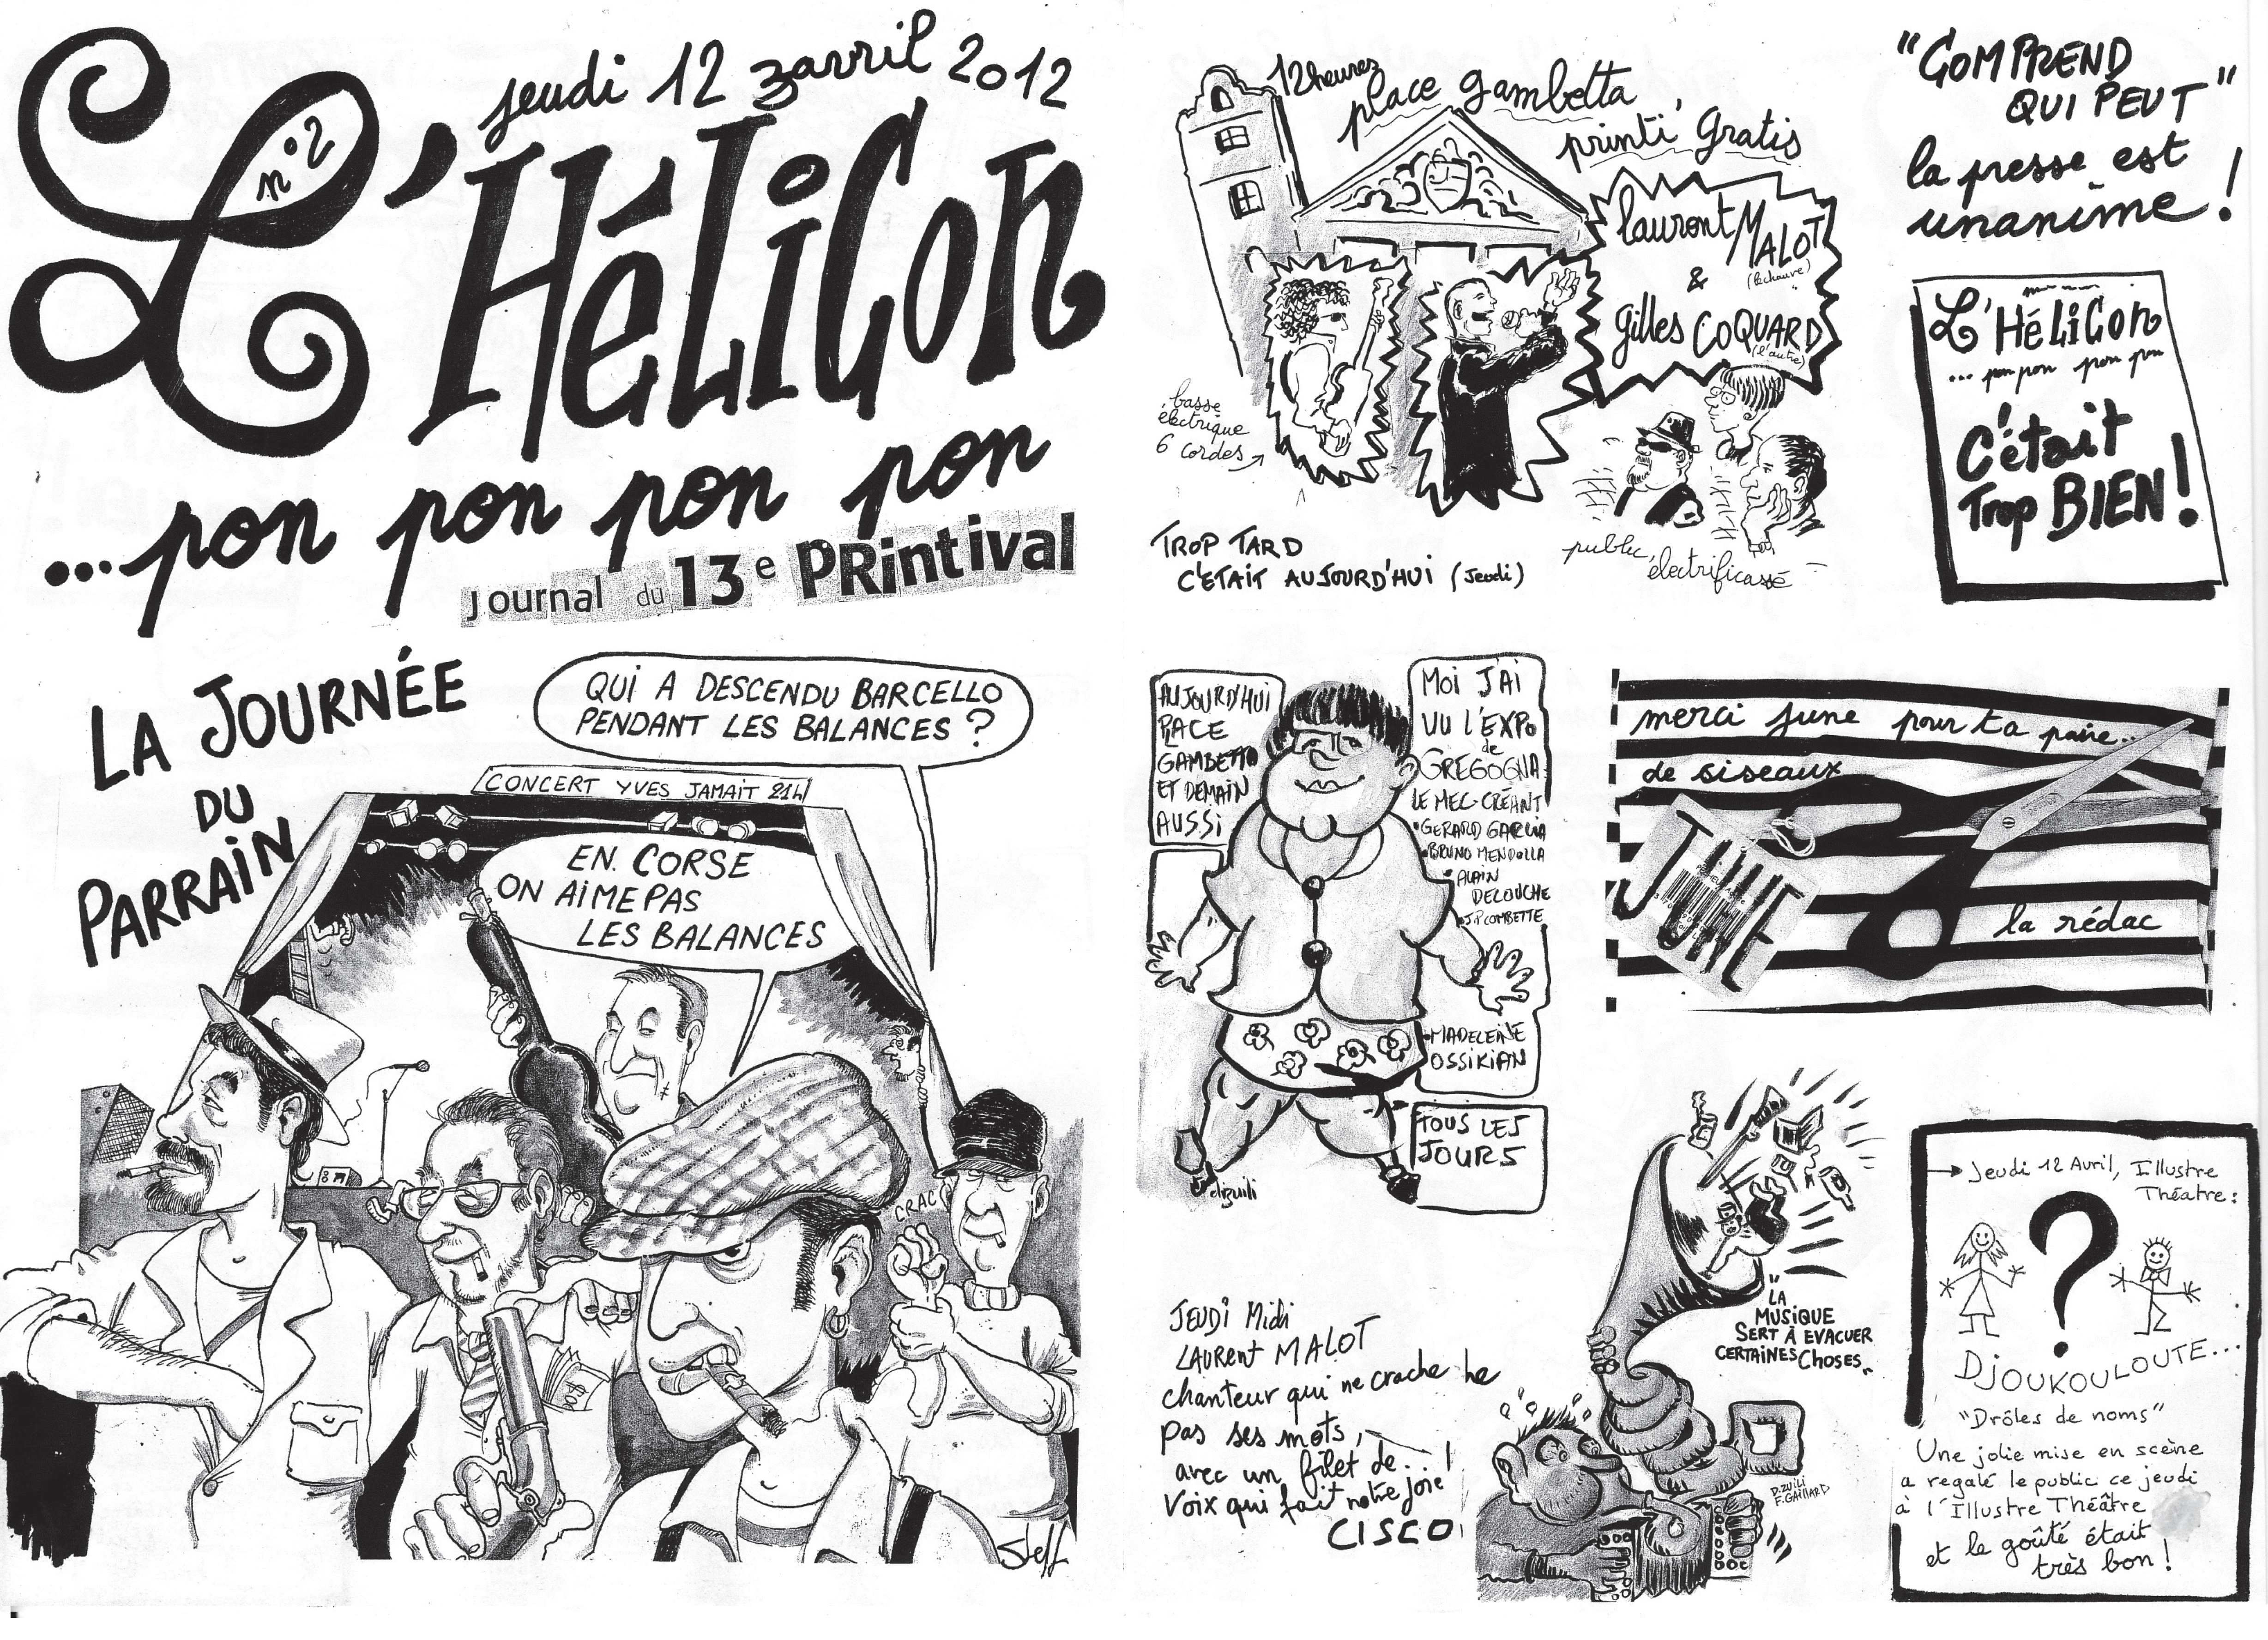 jeudi 12 3avril 2012
n°2
L'HéLiCon
...pon pon pon pon
Journal du 13e PRintival
LA JOURNÉE
DU
PARRAiN
QUI A DESCENDU BARCELLO
PENDANT LES BALANCES ?
CONCERT YVES JAMAIT 21h
EN CORSE
ON AIME PAS
LES BALANCES
CRAC
Steff
12 heures
place gambetta
printi' gratis
lauront MALOT
(le chauve)
&
gilles COQUARD
(l'autre)
basse
électrique
6 cordes
TROP TARD
C'ÉTAIT AUJOURD'HUI (Jeudi)
public, électrificassé
"COMPREND
QUI PEUT"
la presse est
unanime !
L'HéLiCon
... pon pon pon pon
C'était
Trop BIEN !
AUJOURD'HUI
PLACE
GAMBETTA
ET DEMAIN
AUSSI
MOI J'AI
VU L'EXPO
de
GREGOGNA
LE MEC-CRÉANT
• GERARD GARCIA
• BRUNO MENDOLLA
• ALAIN
DELOUCHE
• J.P COMBETTE
• MADELEINE
OSSIKIAN
TOUS LES
JOURS
dzuili
merci june pour ta paire..
de siseaux
JUNE
la rédac
JEUDI Midi
LAURENT MALOT
chanteur qui ne crache he
pas ses mots,
avec un filet de...!
Voix qui fait notre joie
CISCO
"LA
MUSIQUE
SERT À EVACUER
CERTAINES CHOSES."
D.ZUILI
F.GAILLARD
→ Jeudi 12 Avril, Illustre
Théatre :
?
DJOUKOULOUTE...
"Drôles de noms"
Une jolie mise en scène
a regalé le public ce jeudi
à l'Illustre Théâtre
et le goûté était
très bon !